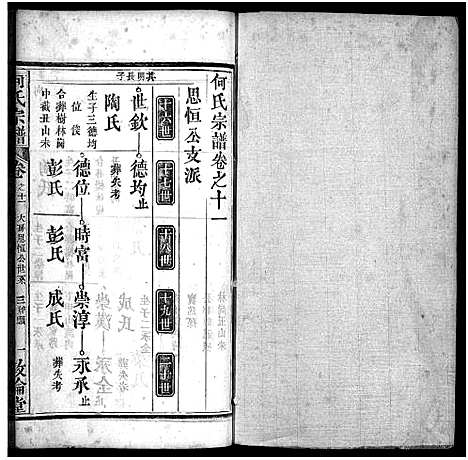 何氏宗譜卷之十一
思恒公支派
十六世
十七世
十八世
十九世
二十世
其開長子
世欽
德均止
陶氏
葬失考
生子三德均
位
合葬樹林崗
中截丑山未
德位
時富
崇淳
永承止
彭氏
彭氏
成氏
葬失考
何氏宗譜
卷之十一
大屏思恒公世系
三
一
敦倫堂